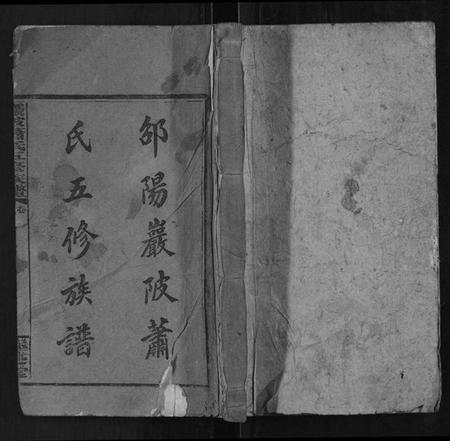 邵陽巖陂蕭
氏五修族譜